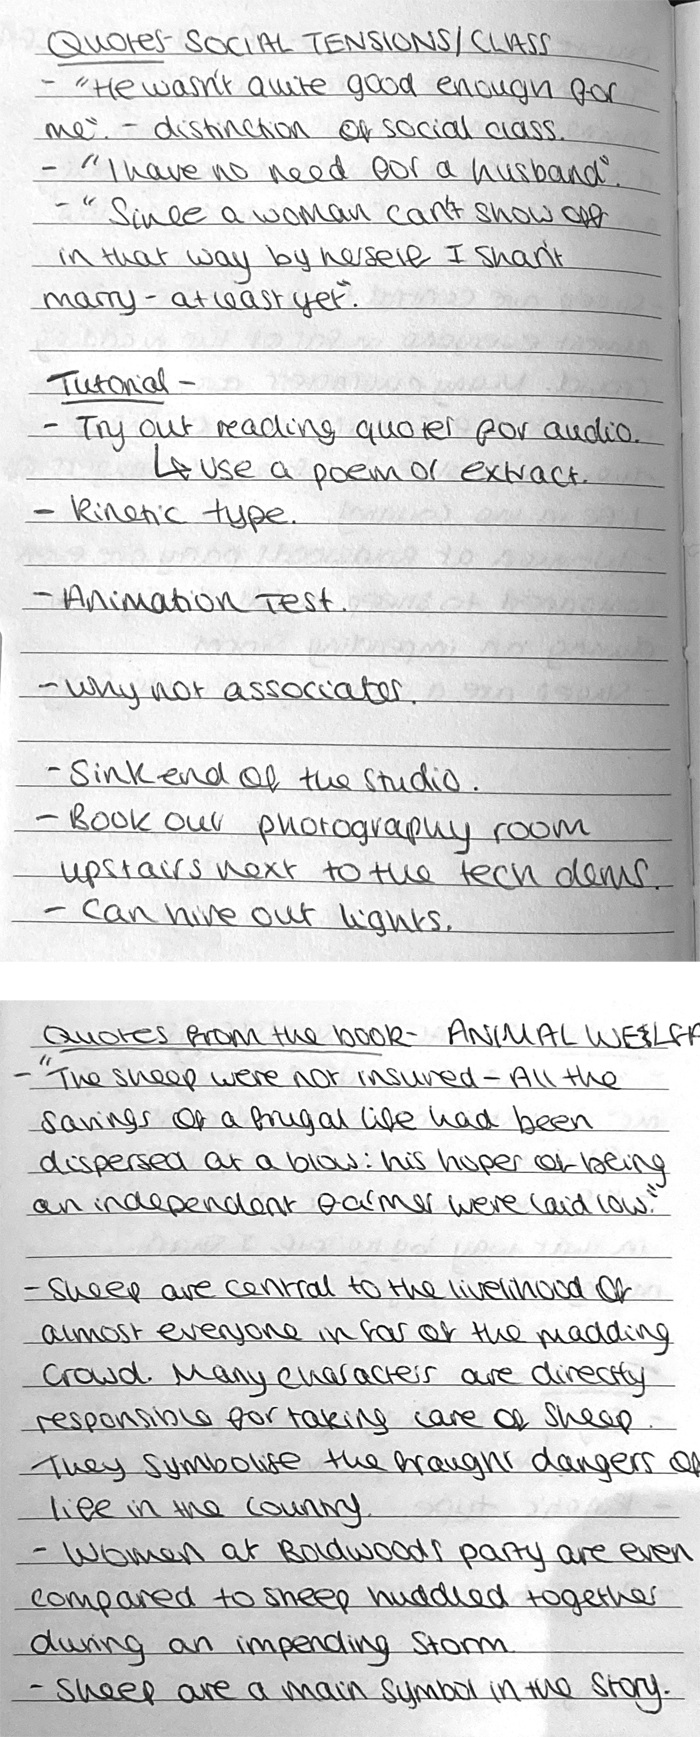 Quotes - SOCIAL TENSIONS/CLASS
- "He wasn't quite good enough for
me". - distinction of social class.
- "I have no need for a husband".
- "Since a woman can't show off
in that way by herself I shan't
marry - at least yet".
Tutorial -
- Try out reading quotes for audio.
↳ use a poem or extract.
- Kinetic type.
- Animation Test.
- Why not associates.
- Sink end of the studio.
- Book our photography room
upstairs next to the tech dems.
- Can hire out lights.
Quotes from the book - ANIMAL WELFA
- "The sheep were not insured - All the
savings of a frugal life had been
dispersed at a blow: his hopes of being
an independent farmer were laid low."
- Sheep are central to the livelihood of
almost everyone in far of the madding
Crowd. Many characters are directly
responsible for taking care of sheep.
They symbolise the fraught dangers of
life in the country.
- Women at Boldwoods party are even
compared to sheep huddled together
during an impending storm
- Sheep are a main symbol in the story.